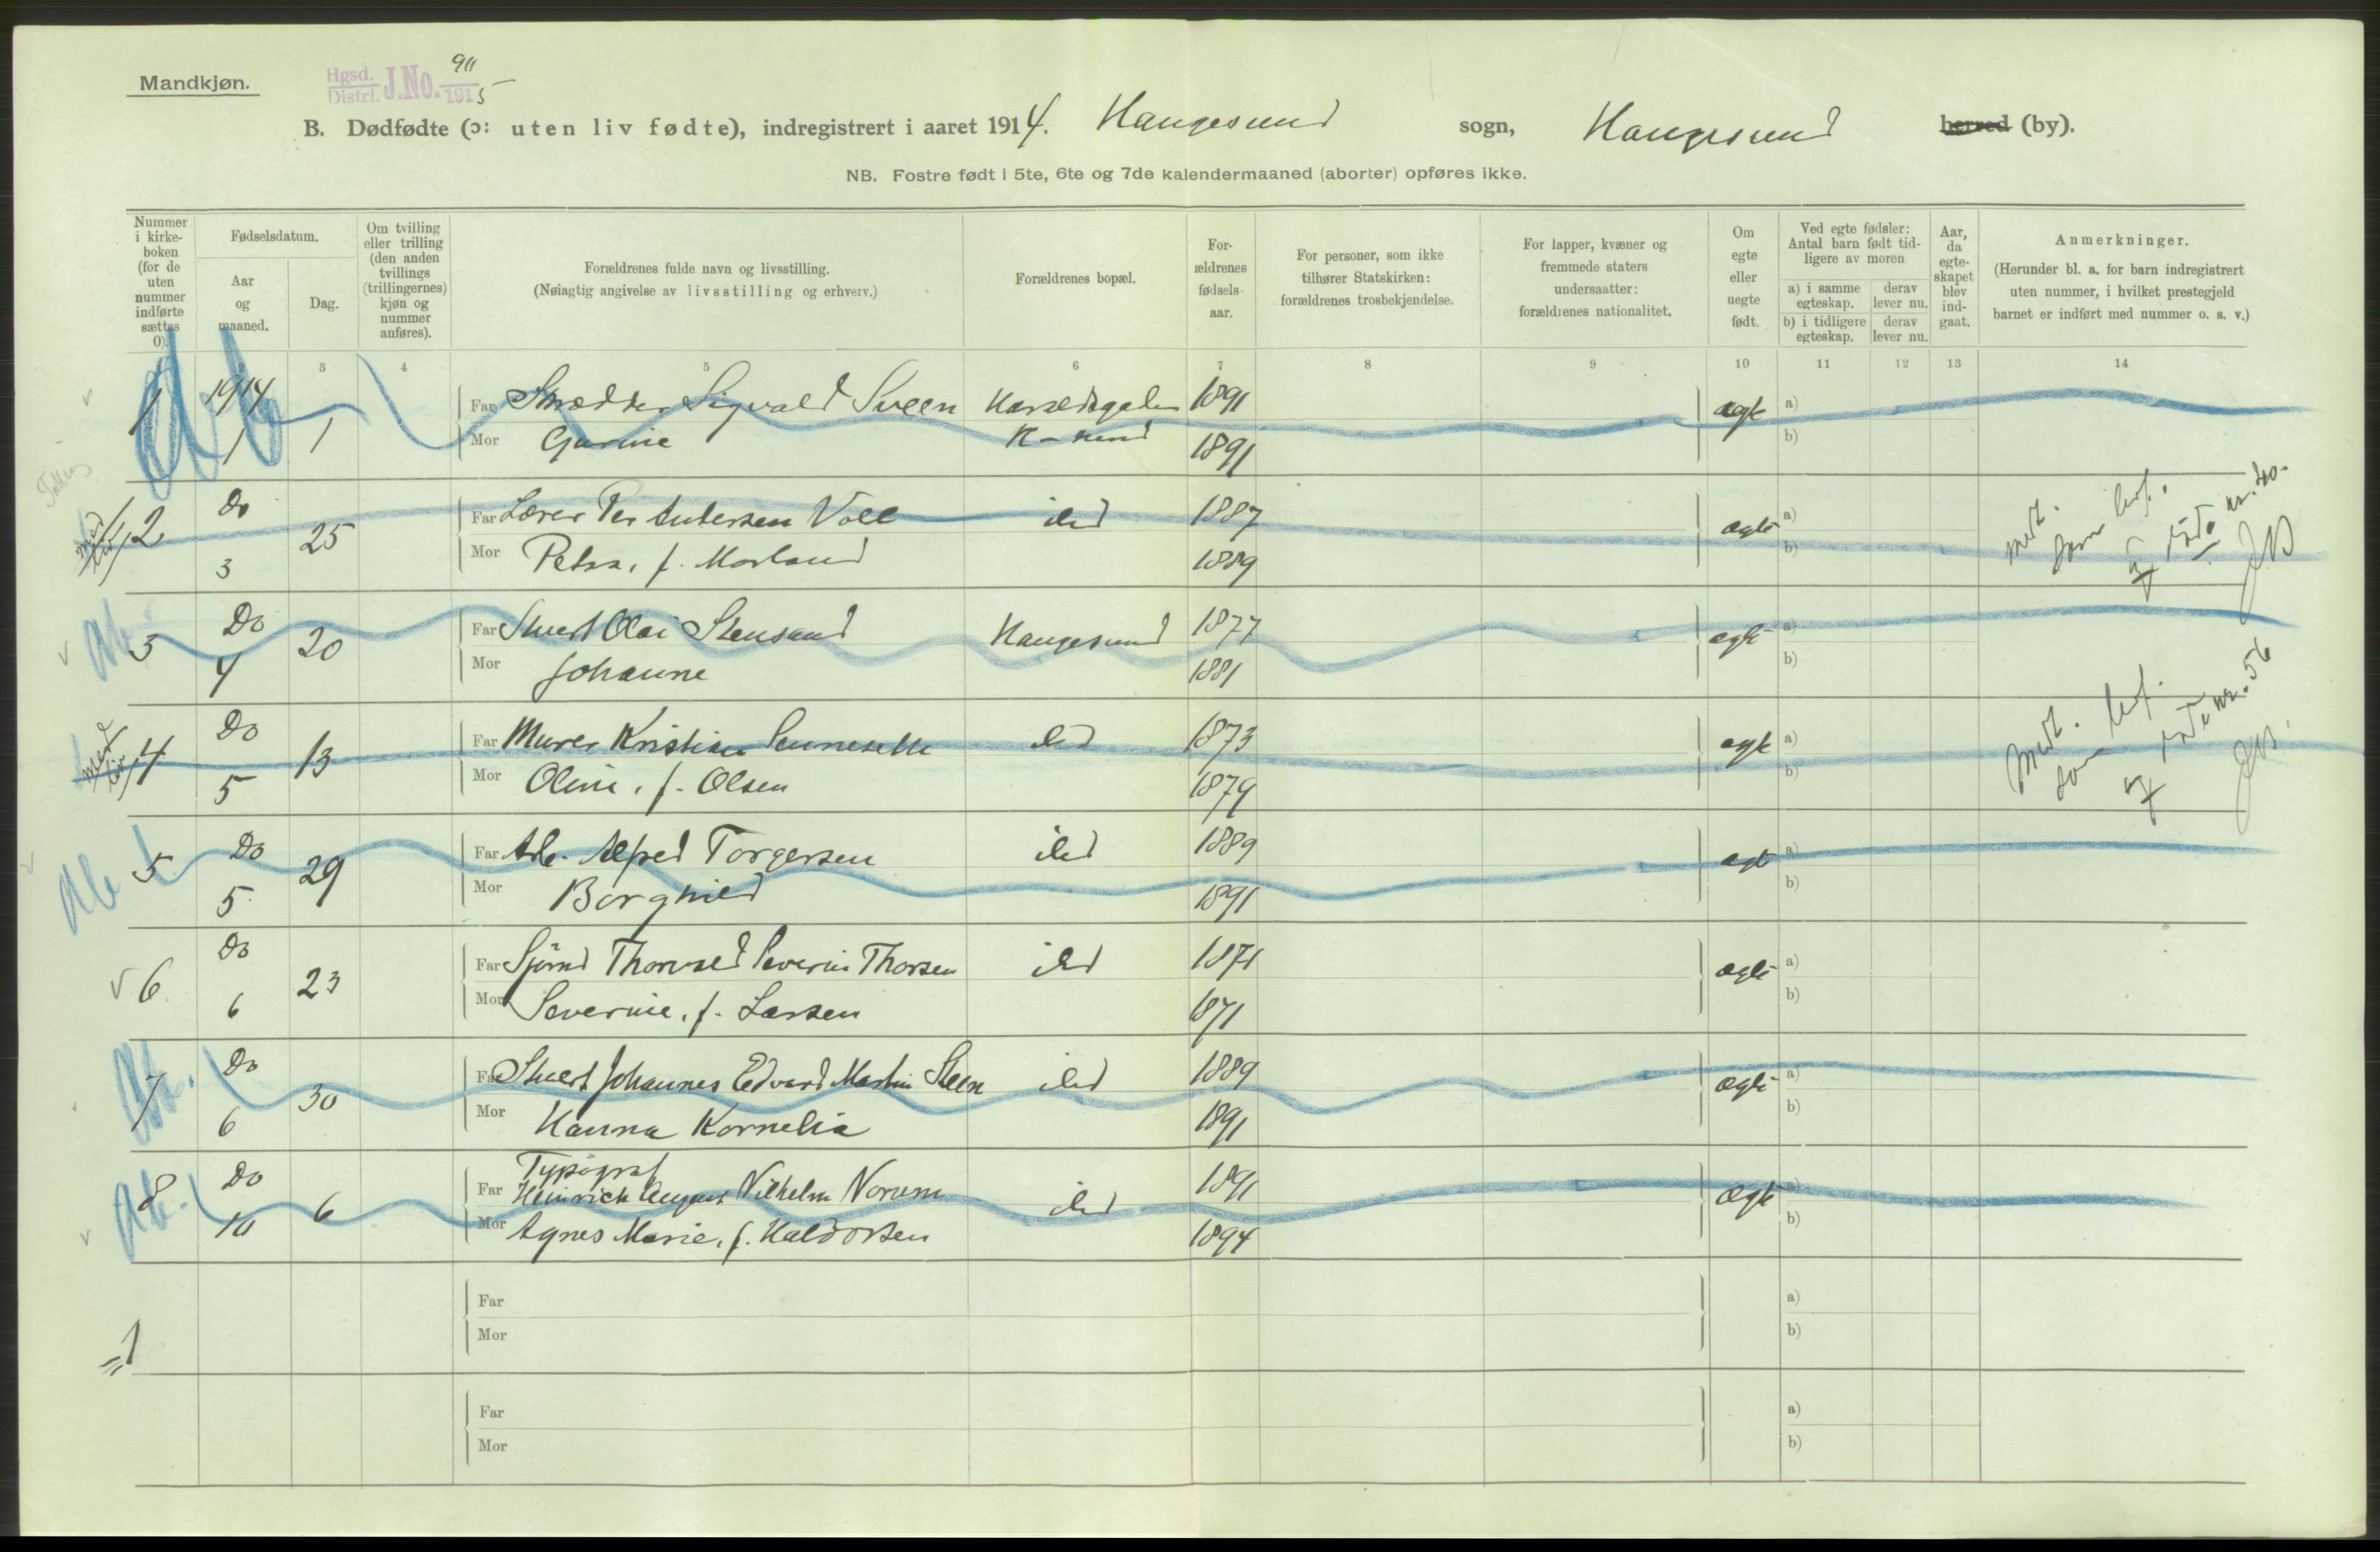 Mandkjøn.
Hgsd. Distrl. J.No. 911 1915
B. Dødfødte (ɔ: uten liv fødte), indregistrert i aaret 1914. Haugesund sogn, Haugesund herred (by).
NB. Fostre født i 5te, 6te og 7de kalendermaaned (aborter) opføres ikke.
Nummer i kirke-boken (for de uten nummer indførte sættes 0).
Fødselsdatum.
Aar og maaned.
Dag.
Om tvilling eller trilling (den anden tvillings (trillingernes) kjøn og nummer anføres).
Forældrenes fulde navn og livsstilling.
(Nøiagtig angivelse av livsstilling og erhverv.)
Forældrenes bopæl.
For-ældrenes fødsels-aar.
For personer, som ikke tilhører Statskirken: forældrenes trosbekjendelse.
For lapper, kvæner og fremmede staters undersaatter: forældrenes nationalitet.
Om egte eller uegte født.
Ved egte fødsler: Antal barn født tid-ligere av moren
a) i samme egteskap. derav lever nu.
b) i tidligere egteskap. derav lever nu.
Aar, da egte-skapet blev ind-gaat.
Anmerkninger.
(Herunder bl. a. for barn indregistrert uten nummer, i hvilket prestegjeld barnet er indført med nummer o. s. v.)
3 4 5 6 7 8 9 10 11 12 13 14
Ab
1 1914 Far Skrædder Sigvald Sveen 1891 egte a)
1 1 Mor Gurine H-sund 1891 b)
med liv 2 Do 25 Far Lærer Per Andersen Voll ibd 1887 egte a)
3 Mor Petra, f. Morland 1889 b)
Ab. 3 Do 20 Far Stuert Olai Stensand Haugesund 1877 egte a)
4 Mor Johanne 1881 b)
med liv 4 Do 13 Far Murer Kristian ibd 1873 egte a)
5 Mor Oline, f. Olsen 1879 b)
Ab 5 Do 29 Far Arb. Alfred Torgersen ibd 1889 egte a)
5 Mor Borghild 1891 b)
6 Do 23 Far Sjømd Thorvald Severin Thorsen ibd 1871 egte a)
6 Mor Severine, f. Larsen 1871 b)
Ab. 7 Do 30 Far Stuert Johannes Edvard Martin Steen ibd 1889 egte a)
6 Mor Hanna Kornelia 1891 b)
Ab. 8 Do 6 Typograf
Far Heinrich August Vilhelm Norum ibd 1891 egte a)
10 Mor Agnes Marie, f. Haldorsen 1894 b)
Far a)
Mor b)
=1
Far a)
Mor b)